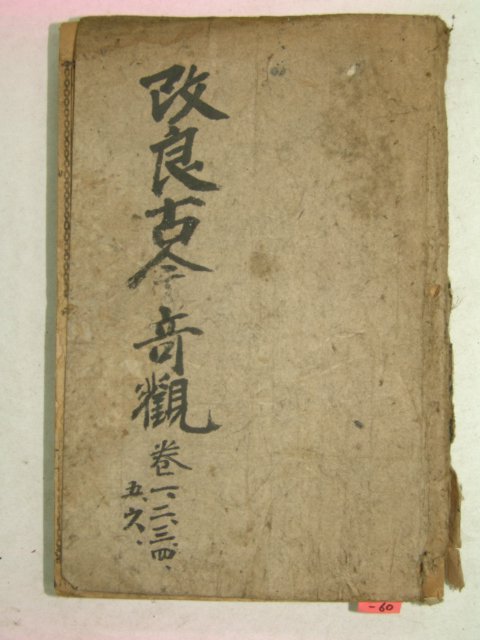 改良古今奇觀
卷一、二、三、四、
五、六、
-60